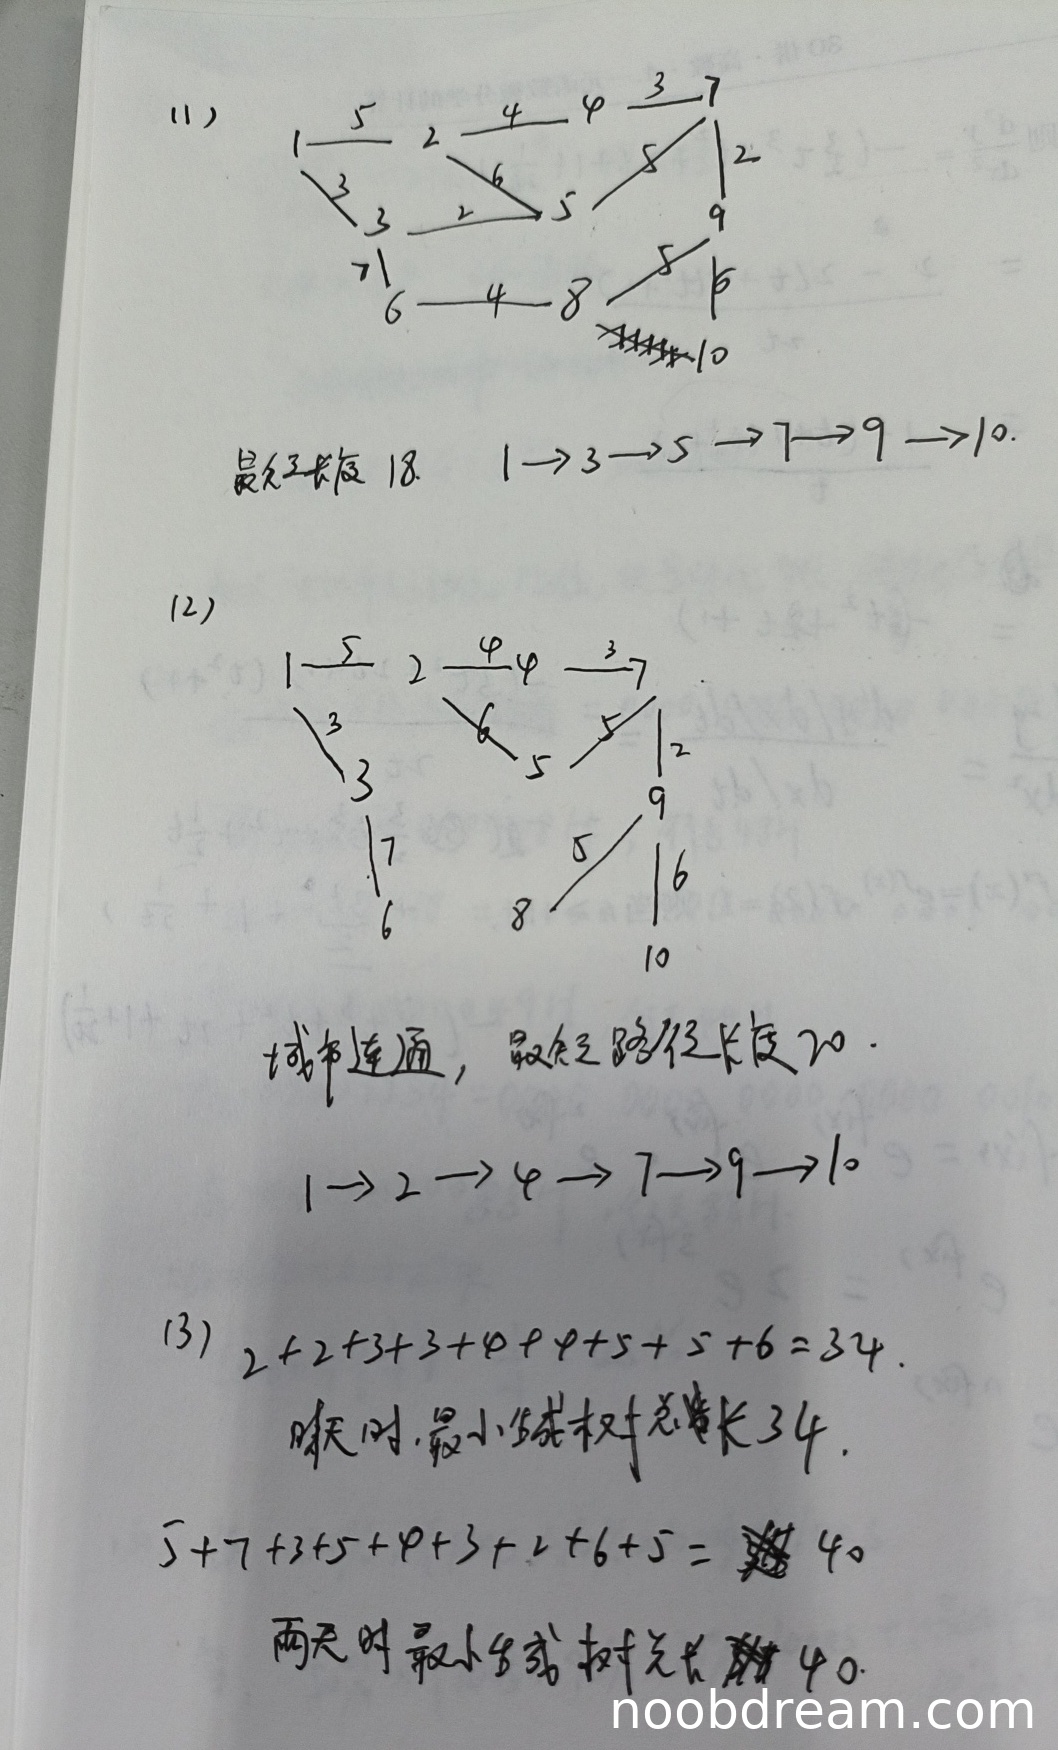 (1)
1 5 2 4 4 3 7
3 6 5 2
3 2 5 9
7 5 6
6 4 8
10
最短长度 18. 1→3→5→7→9→10.
(2)
1 5 2 4 4 3 7
3 6 5 2
3 5 9
7 5 6
6 8
10
城市连通,最短路径长度20.
1→2→4→7→9→10
(3) 2+2+3+3+4+4+5+5+6=34.
晴天时,最小生成树总长34.
5+7+3+5+4+3+2+6+5= 40
雨天时最小生成树总长 40.
noobdream.com